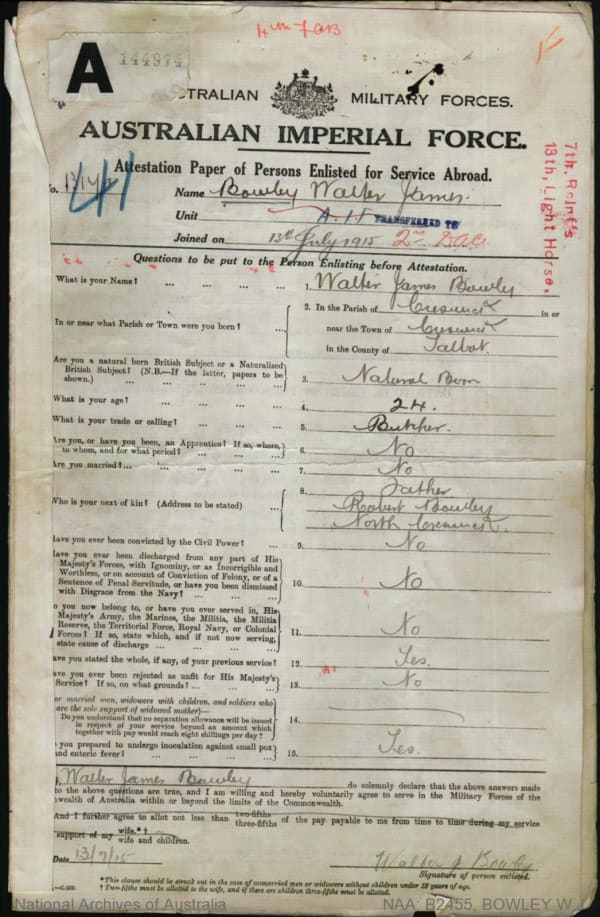 4th FAB
A 144974
STRALIAN MILITARY FORCES.
AUSTRALIAN IMPERIAL FORCE.
Attestation Paper of Persons Enlisted for Service Abroad.
7th. Reinf's
13th, Light Horse,
o.
Name Bowley Walter James.
Unit TRANSFERED TO
Joined on 13th July 1915 2nd DAC.
Questions to be put to the Person Enlisting before Attestation.
What is your Name? ... ... ... ... 1. Walter James Bowley
In or near what Parish or Town were you born? ... 2. In the Parish of Creswick in or
near the Town of Creswick
in the County of Talbot
Are you a natural born British Subject or a Naturalized
British Subject? (N.B.—If the latter, papers to be
shown.) ... ... ... ... 3. Natural Born
What is your age? ... ... ... ... 4. 24.
What is your trade or calling? ... ... ... 5. Butcher.
Are you, or have you been, an Apprentice? If so, where,
to whom, and for what period? ... ... ... 6. No
Are you married? ... ... ... ... 7. No
Who is your next of kin? (Address to be stated) ... 8. Father
Robert Bowley
North Creswick.
Have you ever been convicted by the Civil Power? ... 9. No
Have you ever been discharged from any part of His
Majesty's Forces, with Ignominy, or as Incorrigible and
Worthless, or on account of Conviction of Felony, or of a
Sentence of Penal Servitude, or have you been dismissed
with Disgrace from the Navy? ... ... ... 10. No
o you now belong to, or have you ever served in, His
Majesty's Army, the Marines, the Militia, the Militia
Reserve, the Territorial Force, Royal Navy, or Colonial
Forces? If so, state which, and if not now serving,
state cause of discharge ... ... ... 11. No
ave you stated the whole, if any, of your previous service? 12. Yes.
ave you ever been rejected as unfit for His Majesty's
Service? If so, on what grounds? ... ... ... 13. No
or married men, widowers with children, and soldiers who
are the sole support of widowed mother)—
Do you understand that no separation allowance will be issued
in respect of your service beyond an amount which
together with pay would reach eight shillings per day? 14.
you prepared to undergo inoculation against small pox
and enteric fever? ... ... ... ... 15. Yes.
I, Walter James Bowley do solemnly declare that the above answers made
to the above questions are true, and I am willing and hereby voluntarily agree to serve in the Military Forces of the
wealth of Australia within or beyond the limits of the Commonwealth.
And I further agree to allot not less than two-fifths three-fifths of the pay payable to me from time to time during my service
support of my wife.*† wife and children.
Date 13/7/15 Walter J Bowley
Signature of person enlisted.
*This clause should be struck out in the case of unmarried men or widowers without children under 18 years of age.
† Two-fifths must be allotted to the wife, and if there are children three-fifths must be allotted.
National Archives of Australia NAA: B2455, BOWLEY W J